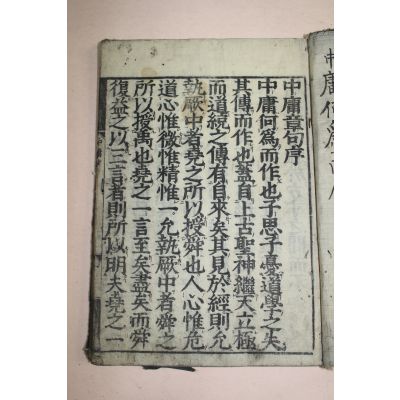 中庸章句序
中庸何為而作也子思子憂道學之失
其傳而作也蓋自上古聖神繼天立極
而道統之傳有自來矣其見於經則允
執厥中者堯之所以授舜也人心惟危
道心惟微惟精惟一允執厥中者舜之
所以授禹也堯之一言至矣盡矣而舜
復益之以三言者則所以明夫堯之一